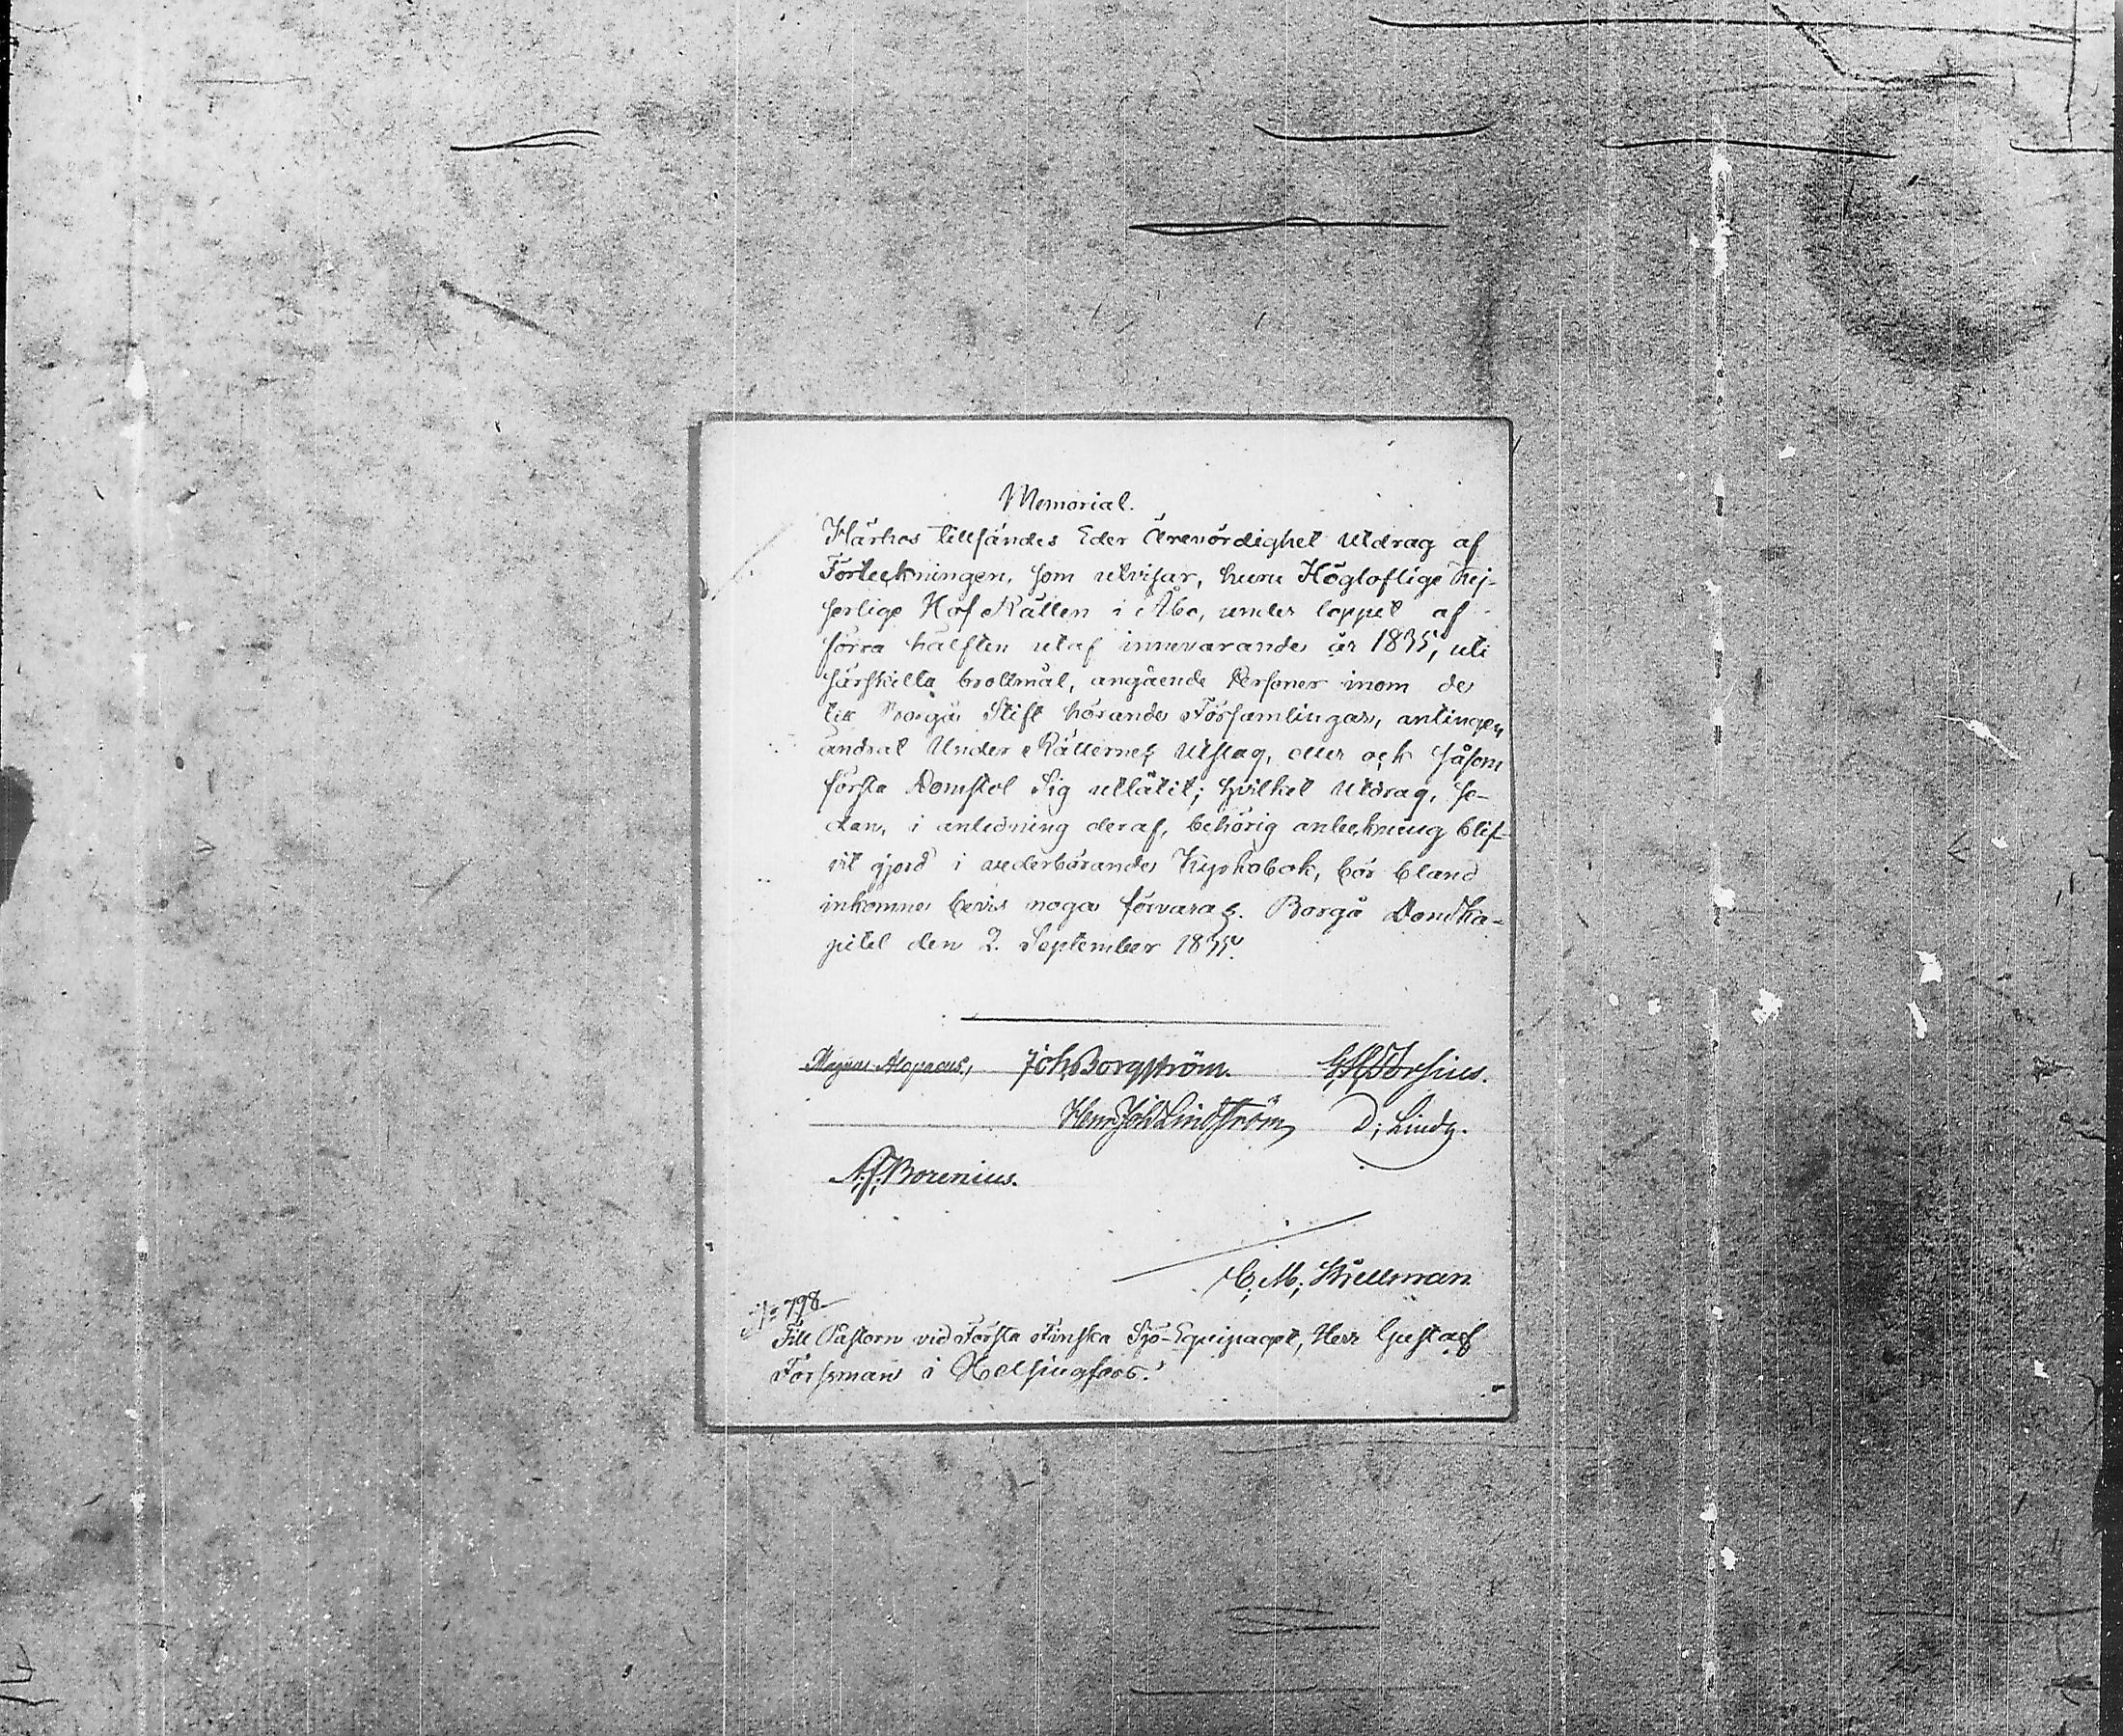 Memorial.
Härhos tillsändes Eder Ärevördighet Utdrag af
Förteckningen, som utvisar, huru Högloflige Kej-
serlige Hof Rätten i Åbo, under loppet af
förra hälften utaf innevarande år 1835, uti
särskilta brottmål, angående Personer inom de
till Borgå Stift hörande Församlingar, antingen
ändrat Under Rätternes Utslag, eller ock såsom
första Domstol sig utlåtit; hvilket Utdrag, se-
dan, i anledning deraf, behörig anteckning blif-
vit gjord i vederbörandes Kyrkobok, bör bland
inkomne bevis noga förvaras. Borgå DomKa-
pitel den 2. September 1835.
Magnus Alopaeus, Joh. Borgström.
Henr. Joh. Lindström, D. Lindh.
A. F. Borenius.
C. M. Kjellman
No 798.
Till Pastorn vid Första Finska Sjö-Equipaget, Herr Gustaf
Forssman i Helsingfors.